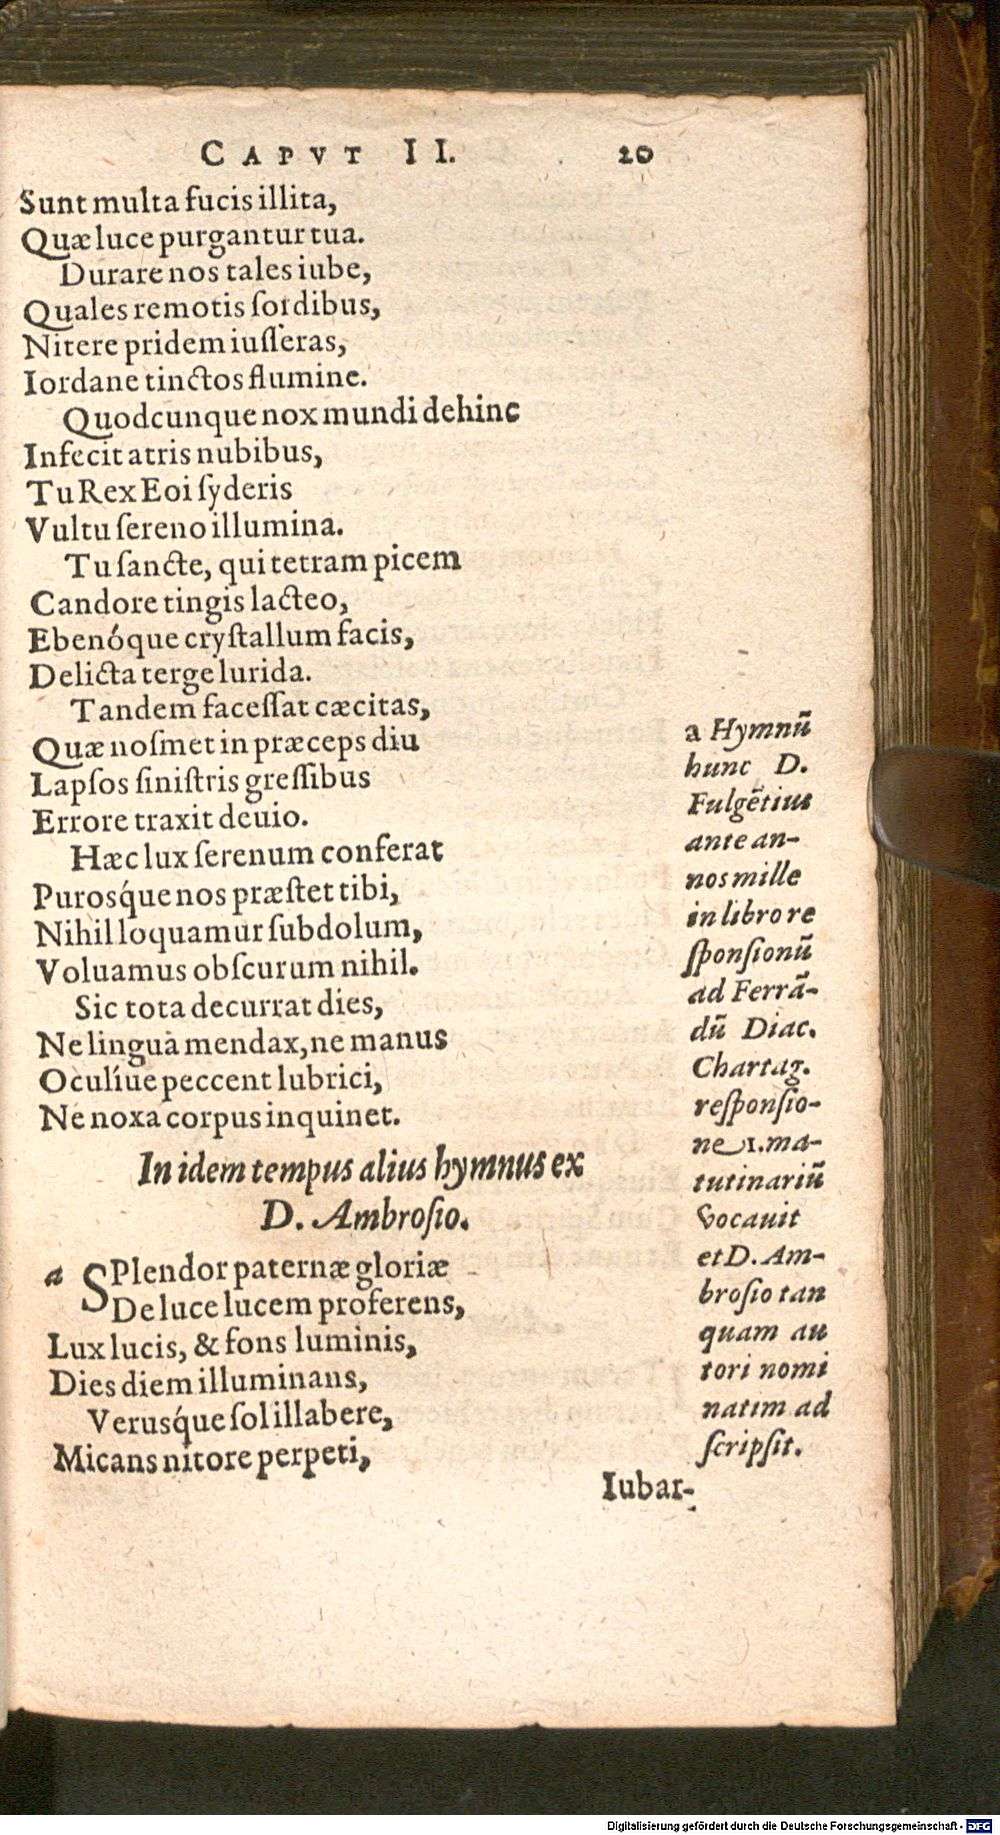 CAPVT II. 20
Sunt multa fucis illita,
Quæ luce purgantur tua.
Durare nos tales iube,
Quales remotis ſordibus,
Nitere pridem iuſſeras,
Iordane tinctos flumine.
Quodcunque nox mundi dehinc
Infecit atris nubibus,
Tu Rex Eoi ſyderis
Vultu ſereno illumina.
Tu ſancte, qui tetram picem
Candore tingis lacteo,
Ebenóque cryſtallum facis,
Delicta terge lurida.
Tandem faceſſat cæcitas,
Quæ noſmet in præceps diu
Lapſos ſiniſtris greſſibus
Errore traxit deuio.
Hæc lux ſerenum conferat
Purosq́ue nos præſtet tibi,
Nihil loquamur ſubdolum,
Voluamus obſcurum nihil.
Sic tota decurrat dies,
Ne lingua mendax, ne manus
Oculíue peccent lubrici,
Ne noxa corpus inquinet.
In idem tempus alius hymnus ex
D. Ambroſio.
a SPlendor paternæ gloriæ
De luce lucem proferens,
Lux lucis, & fons luminis,
Dies diem illuminans,
Verusq́ue ſol illabere,
Micans nitore perpeti,
Iubar-
a Hymnū
hunc D.
Fulgētius
ante an-
nos mille
in libro re
ſponſionū
ad Ferrā-
dū Diac.
Chartag.
reſponſio-
ne 1. ma-
tutinariū
vocauit
et D. Am-
broſio tan
quam au
tori nomi
natim ad
ſcripſit.
Digitalisierung gefördert durch die Deutsche Forschungsgemeinschaft - DFG